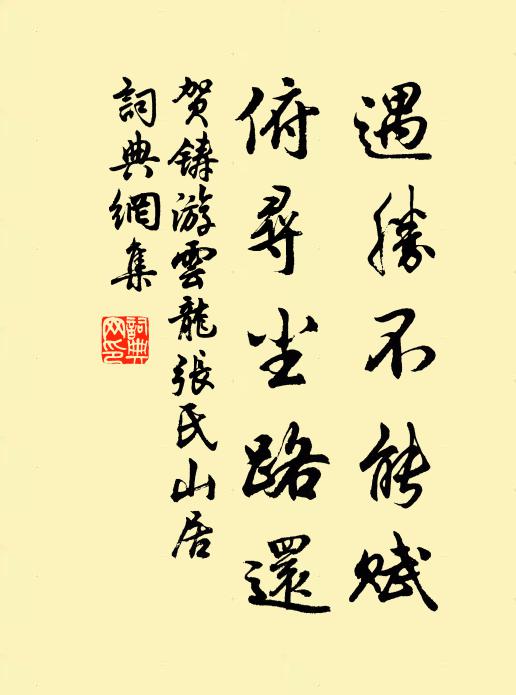 遇勝不能賦
俯尋尘路還
贺鑄游雲龍張氏山居
詞典網集
詞典网印